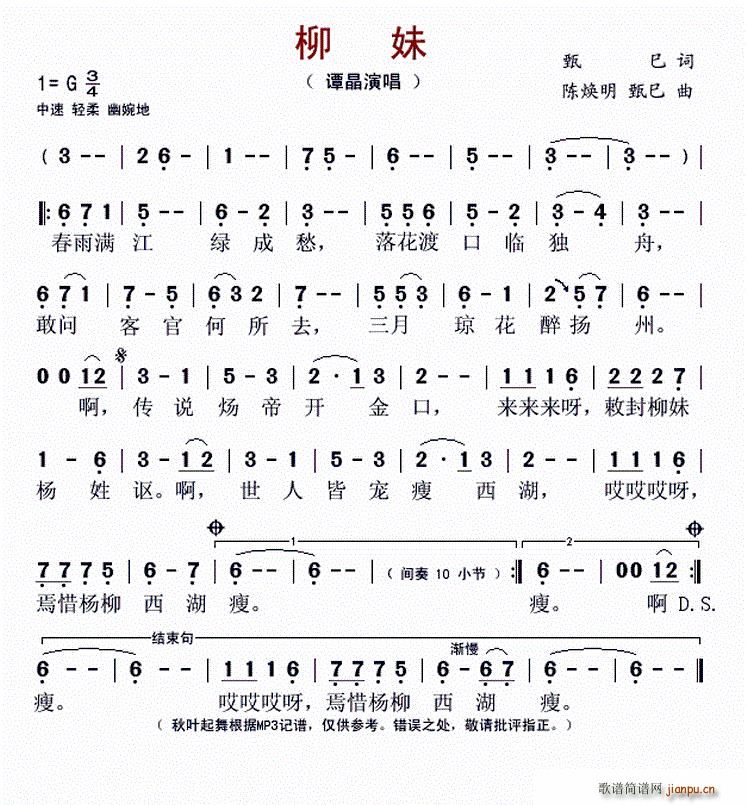 柳 妹
（ 谭晶演唱 ）
甄 巳 词
陈焕明 甄巳 曲
1= G 3/4
中速 轻柔 幽婉地
( 3 - - | 2 6 - | 1 - - | 7 5 - | 6 - - | 5 - - | 3 - - | 3 - - ) |
‖: 6 7 1 | 5 - - | 6 - 2 | 3 - - | 5 5 6 | 5 - 2 | 3 - 4 | 3 - - |
春雨满 江 绿 成 愁， 落花渡 口 临 独 舟，
6 7 1 | 7 - 5 | 6 3 2 | 7 - - | 5 5 3 | 6 - 1 | 2 5 7 | 6 - - |
敢问 客 官 何 所 去， 三月 琼 花 醉 扬 州。
0 0 1 2 | 3 - 1 | 5 - 3 | 2 · 1 3 | 1 1 1 6 | 2 2 2 7 |
啊， 传 说 炀 帝 开 金 口， 来来来呀，敕封柳妹
1 - 6 | 3 - 1 2 | 3 - 1 | 5 - 3 | 2 · 1 3 | 2 - - | 1 1 1 6 |
杨 姓 讴。啊， 世 人 皆 宠 瘦 西 湖， 哎哎哎呀，
1 2
7 7 7 5 | 6 - 7 | 6 - - | 6 - - | （ 间奏 10 小节 ） :‖ 6 - - | 0 0 1 2 :‖
焉惜杨柳 西 湖 瘦。 瘦。 啊 D.S.
结束句 渐慢
6 - - | 6 - - | 1 1 1 6 | 7 7 7 5 | 6 - 6 7 | 6 - - | 6 - - ‖
瘦。 哎哎哎呀，焉惜杨柳 西 湖 瘦。
（ 秋叶起舞根据MP3记谱，仅供参考。错误之处，敬请批评指正。）
歌谱简谱网
jianpu.cn